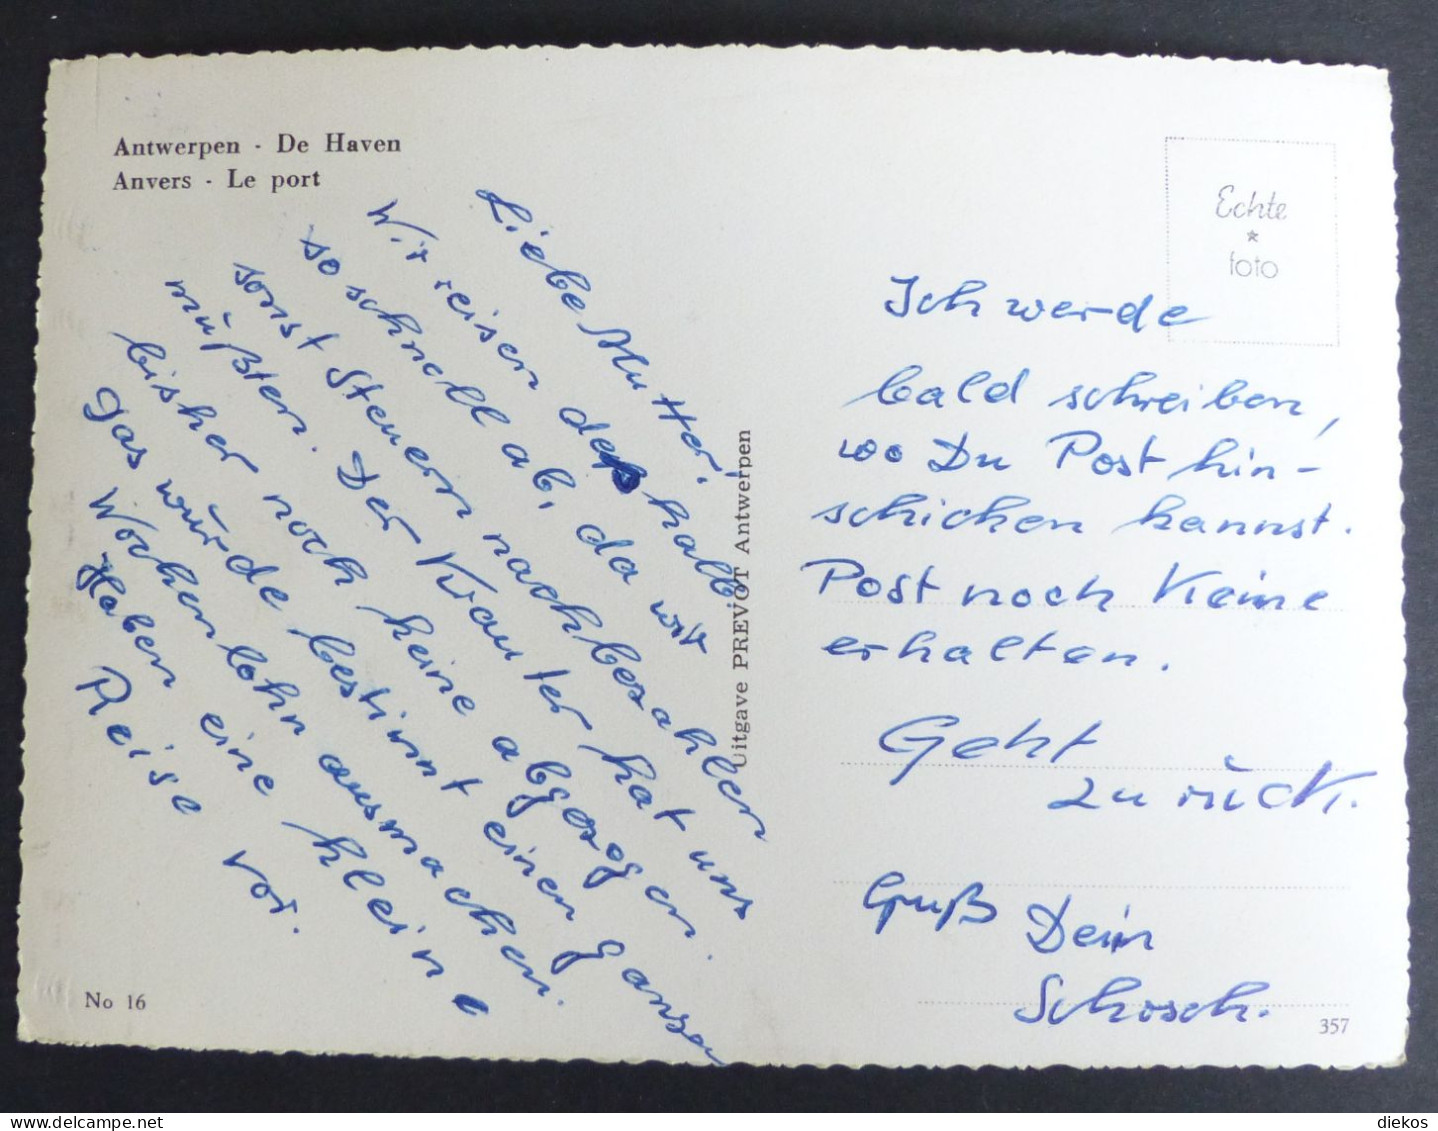 Antwerpen - De Haven
Anvers - Le port
Liebe Mutter!
Wir reisen deshalb
so schnell ab, da wir
sonst Steuern nachbezahlen
müßten. Der Krauter hat uns
bisher noch keine abgezogen.
Das würde bestimmt einen ganzen
Wochenlohn ausmachen.
Haben eine kleine
Reise vor.
No 16
Uitgave PREVOT Antwerpen
Echte
*
foto
Ich werde
bald schreiben,
wo Du Post hin-
schicken kannst.
Post noch keine
erhalten.
Geht
zurück.
Gruß Dein
Schosch.
357
diekos